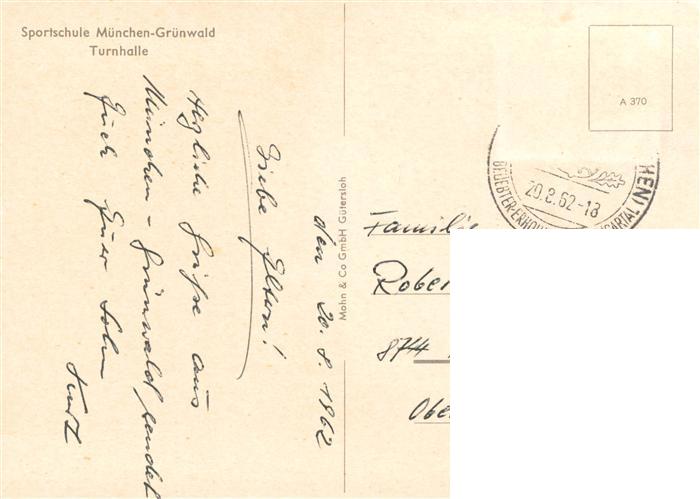 Sportschule München-Grünwald
Turnhalle
den 20. 8. 1962
Liebe Eltern!
Herzliche Grüße aus
München - Grünwald sendet
Euch Euer Sohn
Kurt
Mohn & Co GmbH Gütersloh
A 370
20.8.62-18
BELIEBTER
Familie
Rober
8744
Obe